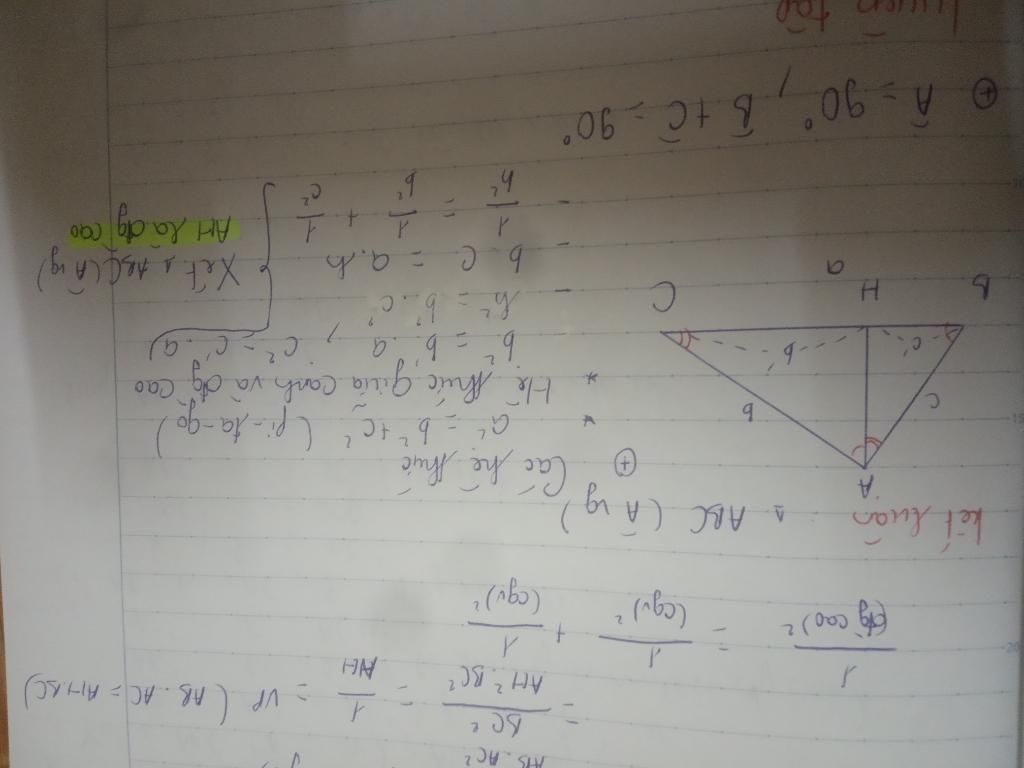 AB . AC²
= BC² / AH² . BC² = 1 / AH = VP ( AB . AC = AH . BC)
1 / (đg cao)² = 1 / (cgv)² + 1 / (cgv)²
kết luận : Δ ABC ( Â vg )
⊕ Các hệ thức
* a² = b² + c² ( Pi - ta - go )
* Hệ thức giữa cạnh và đg cao
- b² = b' . a , c² = c' . a
- h² = b' . c'
- b . c = a . h
- 1 / h² = 1 / b² + 1 / c²
Xét Δ ABC ( Â vg )
AH là đg cao
A
c
b
c'
b'
B
H
C
a
⊕ Â = 90° , B̂ + Ĉ = 90°
Luyện tập